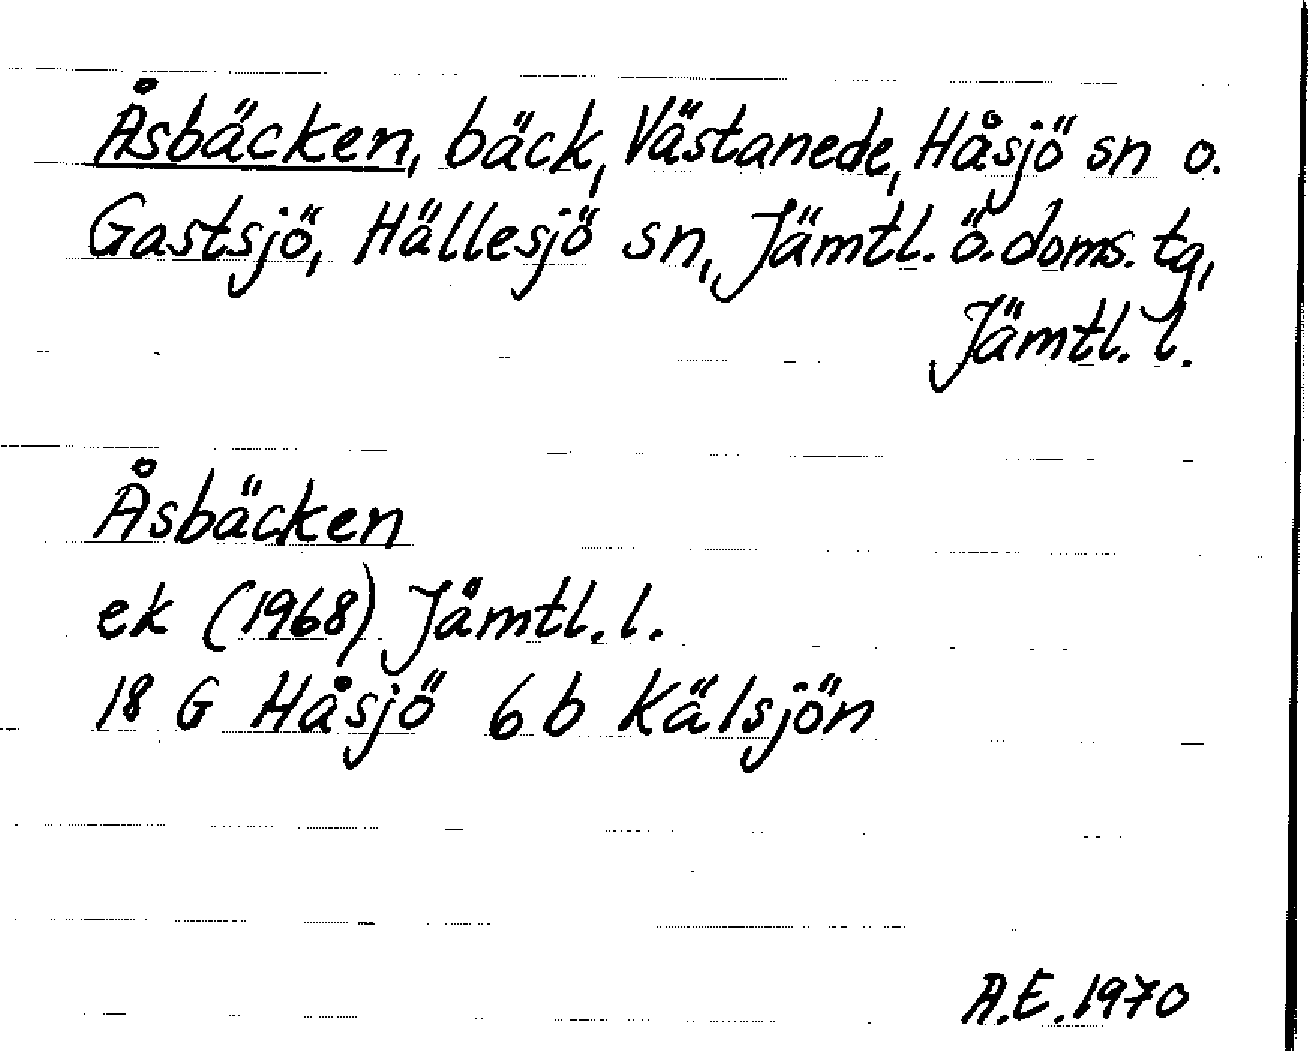 Åsbäcken, bäck, Västanede, Håsjö sn o.
Gastsjö, Hällesjö sn, Jämtl. ö. doms. tg,
Jämtl. l.
Åsbäcken
ek (1968) Jämtl. l.
18 G Håsjö 6 b Kälsjön
A.E. 1970